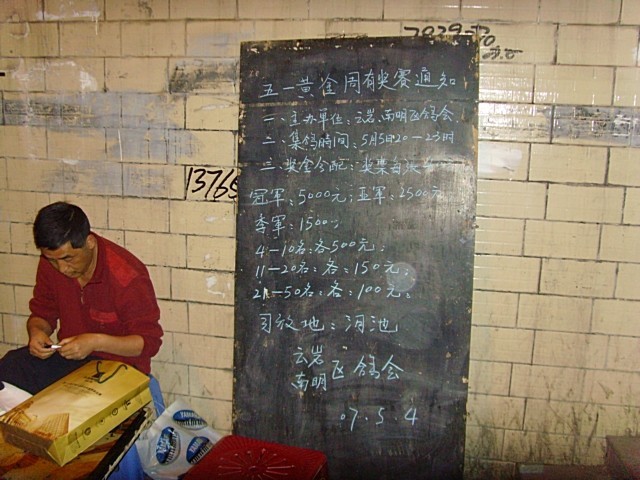 7029-30
五一黄金周有奖赛通知
一、主办单位：云岩、南明区鸽会
二、集鸽时间：5月5日20—23时
三、奖金分配：奖集
冠军：5000元；亚军：2500元
季军：1500
4—10名：各500元；
11—20名：各：150元；
21—50名：各：100元；
司放地：河池
云岩
南明 区鸽会
07.5.4
13765